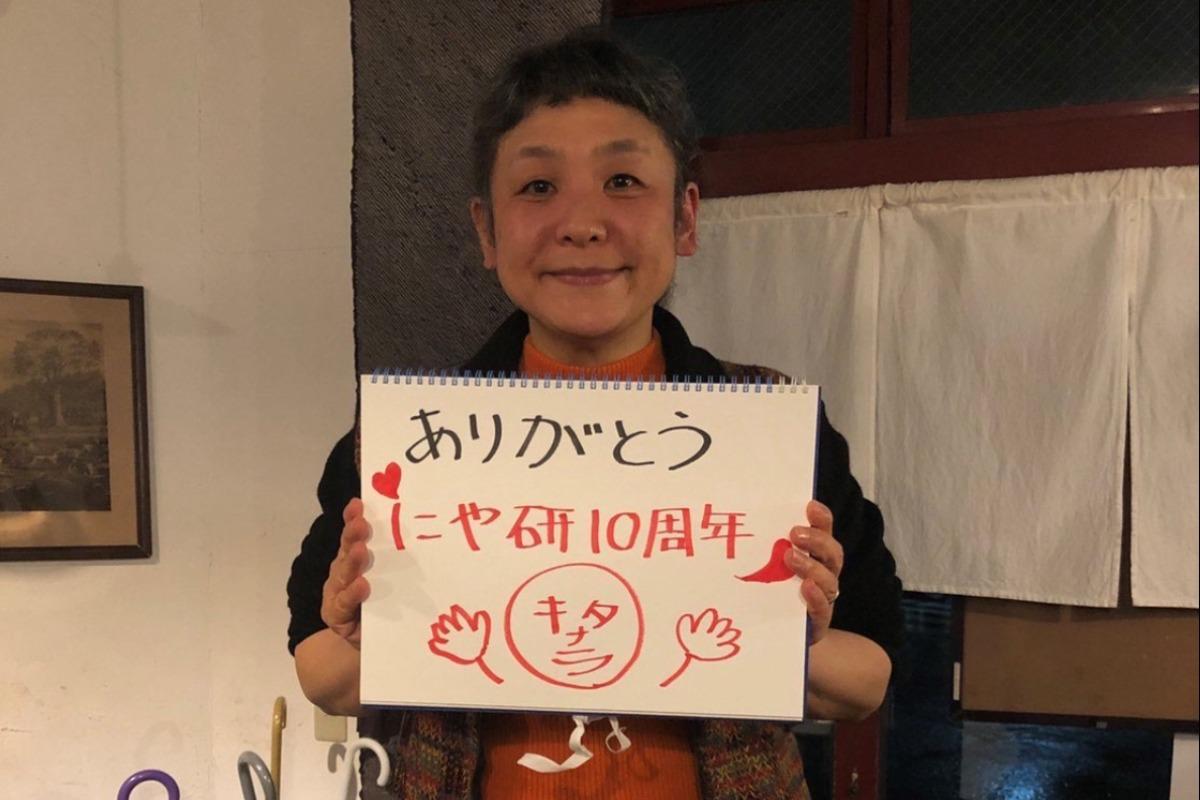 ありがとう
にや研10周年
キタ
ナ
ラ